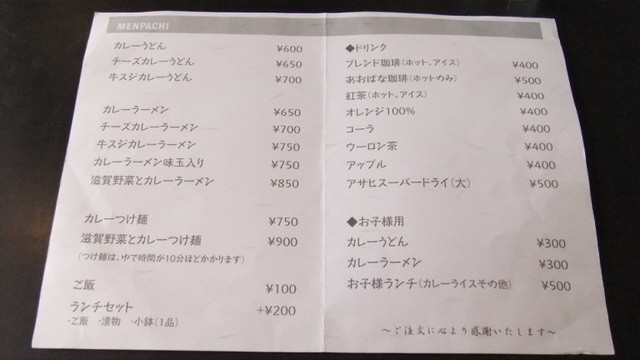 MENPACHI
カレーうどん ¥600
チーズカレーうどん ¥650
牛スジカレーうどん ¥700
カレーラーメン ¥650
チーズカレーラーメン ¥700
牛スジカレーラーメン ¥750
カレーラーメン味玉入り ¥750
滋賀野菜とカレーラーメン ¥850
カレーつけ麺 ¥750
滋賀野菜とカレーつけ麺 ¥900
(つけ麺は、ゆで時間が10分ほどかかります)
ご飯 ¥100
ランチセット +¥200
・ご飯 ・漬物 ・小鉢(1品)
◆ドリンク
ブレンド珈琲(ホット、アイス) ¥400
あおばな珈琲(ホットのみ) ¥500
紅茶(ホット、アイス) ¥400
オレンジ100% ¥400
コーラ ¥400
ウーロン茶 ¥400
アップル ¥400
アサヒスーパードライ(大) ¥500
◆お子様用
カレーうどん ¥300
カレーラーメン ¥300
お子様ランチ(カレーライスその他) ¥500
〜ご注文に心より感謝いたします〜